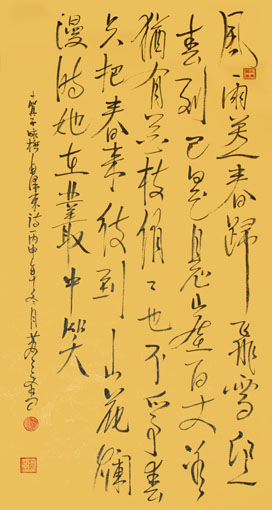 風雨送春歸飛雪迎
春到已是懸崖百丈冰
猶有花枝俏々也不爭春
只把春來待到山花爛
漫時她在叢中笑
卜算子咏梅毛澤東詞丙申年冬月